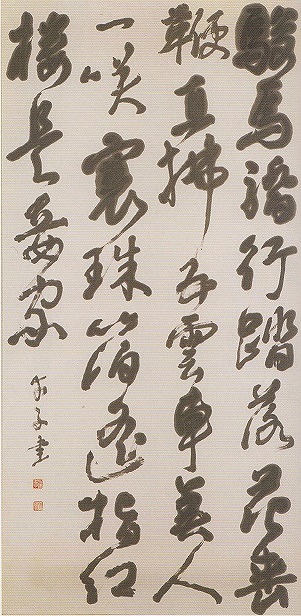 駿馬驕行踏落花垂
鞭直拂五雲車美人
一咲褰珠箔遙指紅
樓是妾家
書